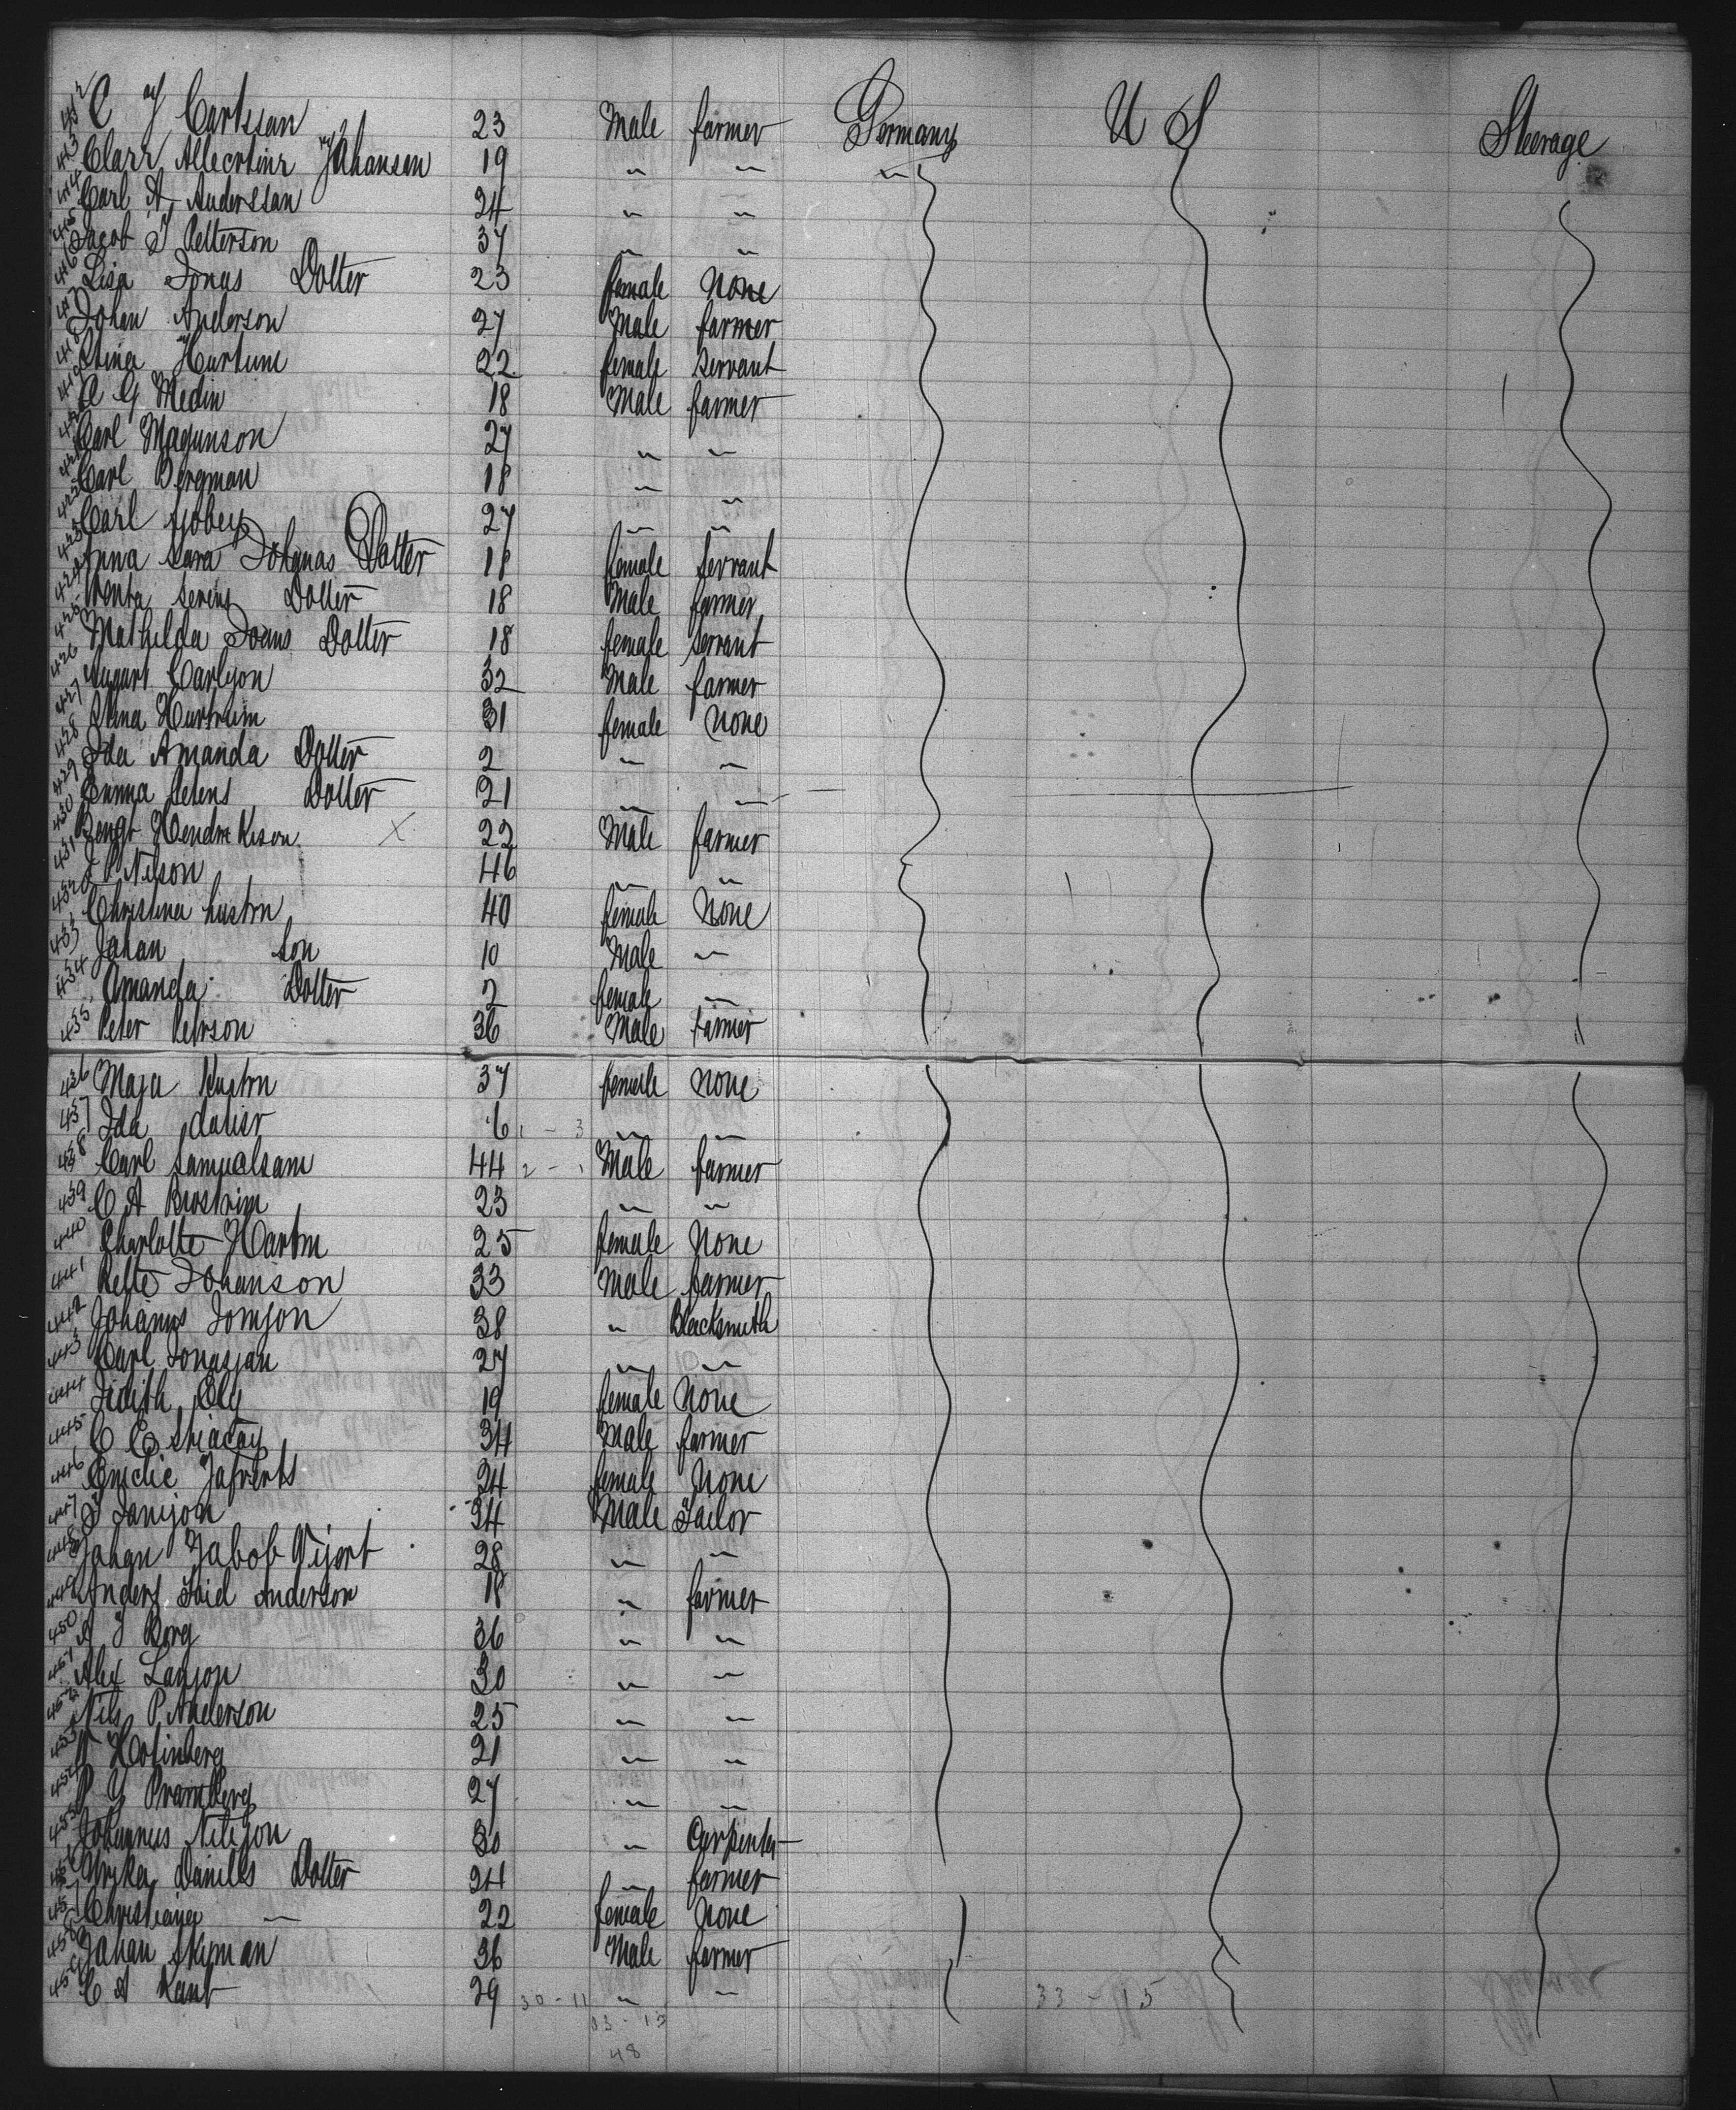 412 C J Carlssan 23 Male farmer Germany U S Steerage
413 Clarr Albertinr Johansen 19 " " "
414 Carl A Anderssan 24 " "
415 Jacob J Petterson 37 " "
416 Lisa Jonas Dotter 23 female None
417 Johan Anderson 27 Male farmer
418 Stina Hurtum 22 female Servant
419 A G Medin 18 Male farmer
420 Carl Magunson 27 " "
421 Carl Bergman 18 "
422 Carl Sjobey 27 " "
423 Anna Sara Johanas Dotter 18 female Servant
424 Benta Sevens Dotter 18 Male farmer
425 Mathilda Joans Dotter 18 female Servant
426 August Carlson 32 Male farmer
427 Stina Hurtrum 31 female None
428 Ida Amanda Dotter 2 " "
429 Emma Petens Dotter 21 " "
430 Bengt Hendre Keson X 22 Male farmer
431 J P Nilson 46 " "
432 Christina hustrn 40 female None
433 Johan Son 10 Male "
434 Amanda Dotter 2 female "
435 Peter Petrson 36 Male farmer
436 Maja Hustrn 37 female None
437 Ida dotter 6 1 - 3 " "
438 Carl Samuelsam 44 2 - 1 Male farmer
439 C A Brostrim 23 " "
440 Charlotte Hartm 25 female None
441 Pette Johanson 33 Male farmer
442 Johanns Jomson 38 " Blacksmith
443 Carl Jonassan 27 " "
444 Judith Ely 19 female None
445 C C 34 Male farmer
446 Emelie 24 female None
447 J Janison 34 Male Tailor
448 Johan Jabob 28 " "
449 Anders Anderson 18 " farmer
450 A J Borg 36 " "
451 Alex Lanson 30 " "
452 Nils P Anderson 25 " "
453 Hofinberg 21 " "
454 P G Bramberg 27 " "
455 Johannus Nilsson 30 " Carpenter
456 Daniells Dotter 24 " farmer
457 Christiana " 22 female None
458 Johan Skipman 36 Male farmer
459 C A Kant 29 30 - 11 " " 33 - 15
03 - 15
48